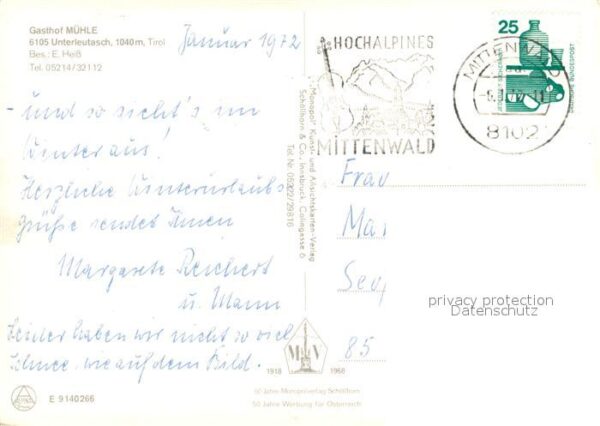 Gasthof MÜHLE
6105 Unterleutasch, 1040m, Tirol
Bes.: E. Heiß
Tel. 05214/32112
Januar 1972
- und so sieht's im
Winter aus!
Herzliche Winterurlaubs-
grüße sendet Ihnen
Margarete Reichert
u. Mann
Leider haben wir nicht so viel
Schnee, wie auf dem Bild.
E 9140266
"Monopol" Kunst- und Ansichtskarten-Verlag
Schöllhorn & Co., Innsbruck, Colingasse 6
Tel. Nr. 05222/29816
1918 M V 1968
60 Jahre Monopolverlag Schöllhorn
50 Jahre Werbung für Österreich
HOCHALPINES
MITTENWALD
25
DEUTSCHE BUNDESPOST
MITTENWALD
8102
Frau
Mar
Sep
85
privacy protection
Datenschutz